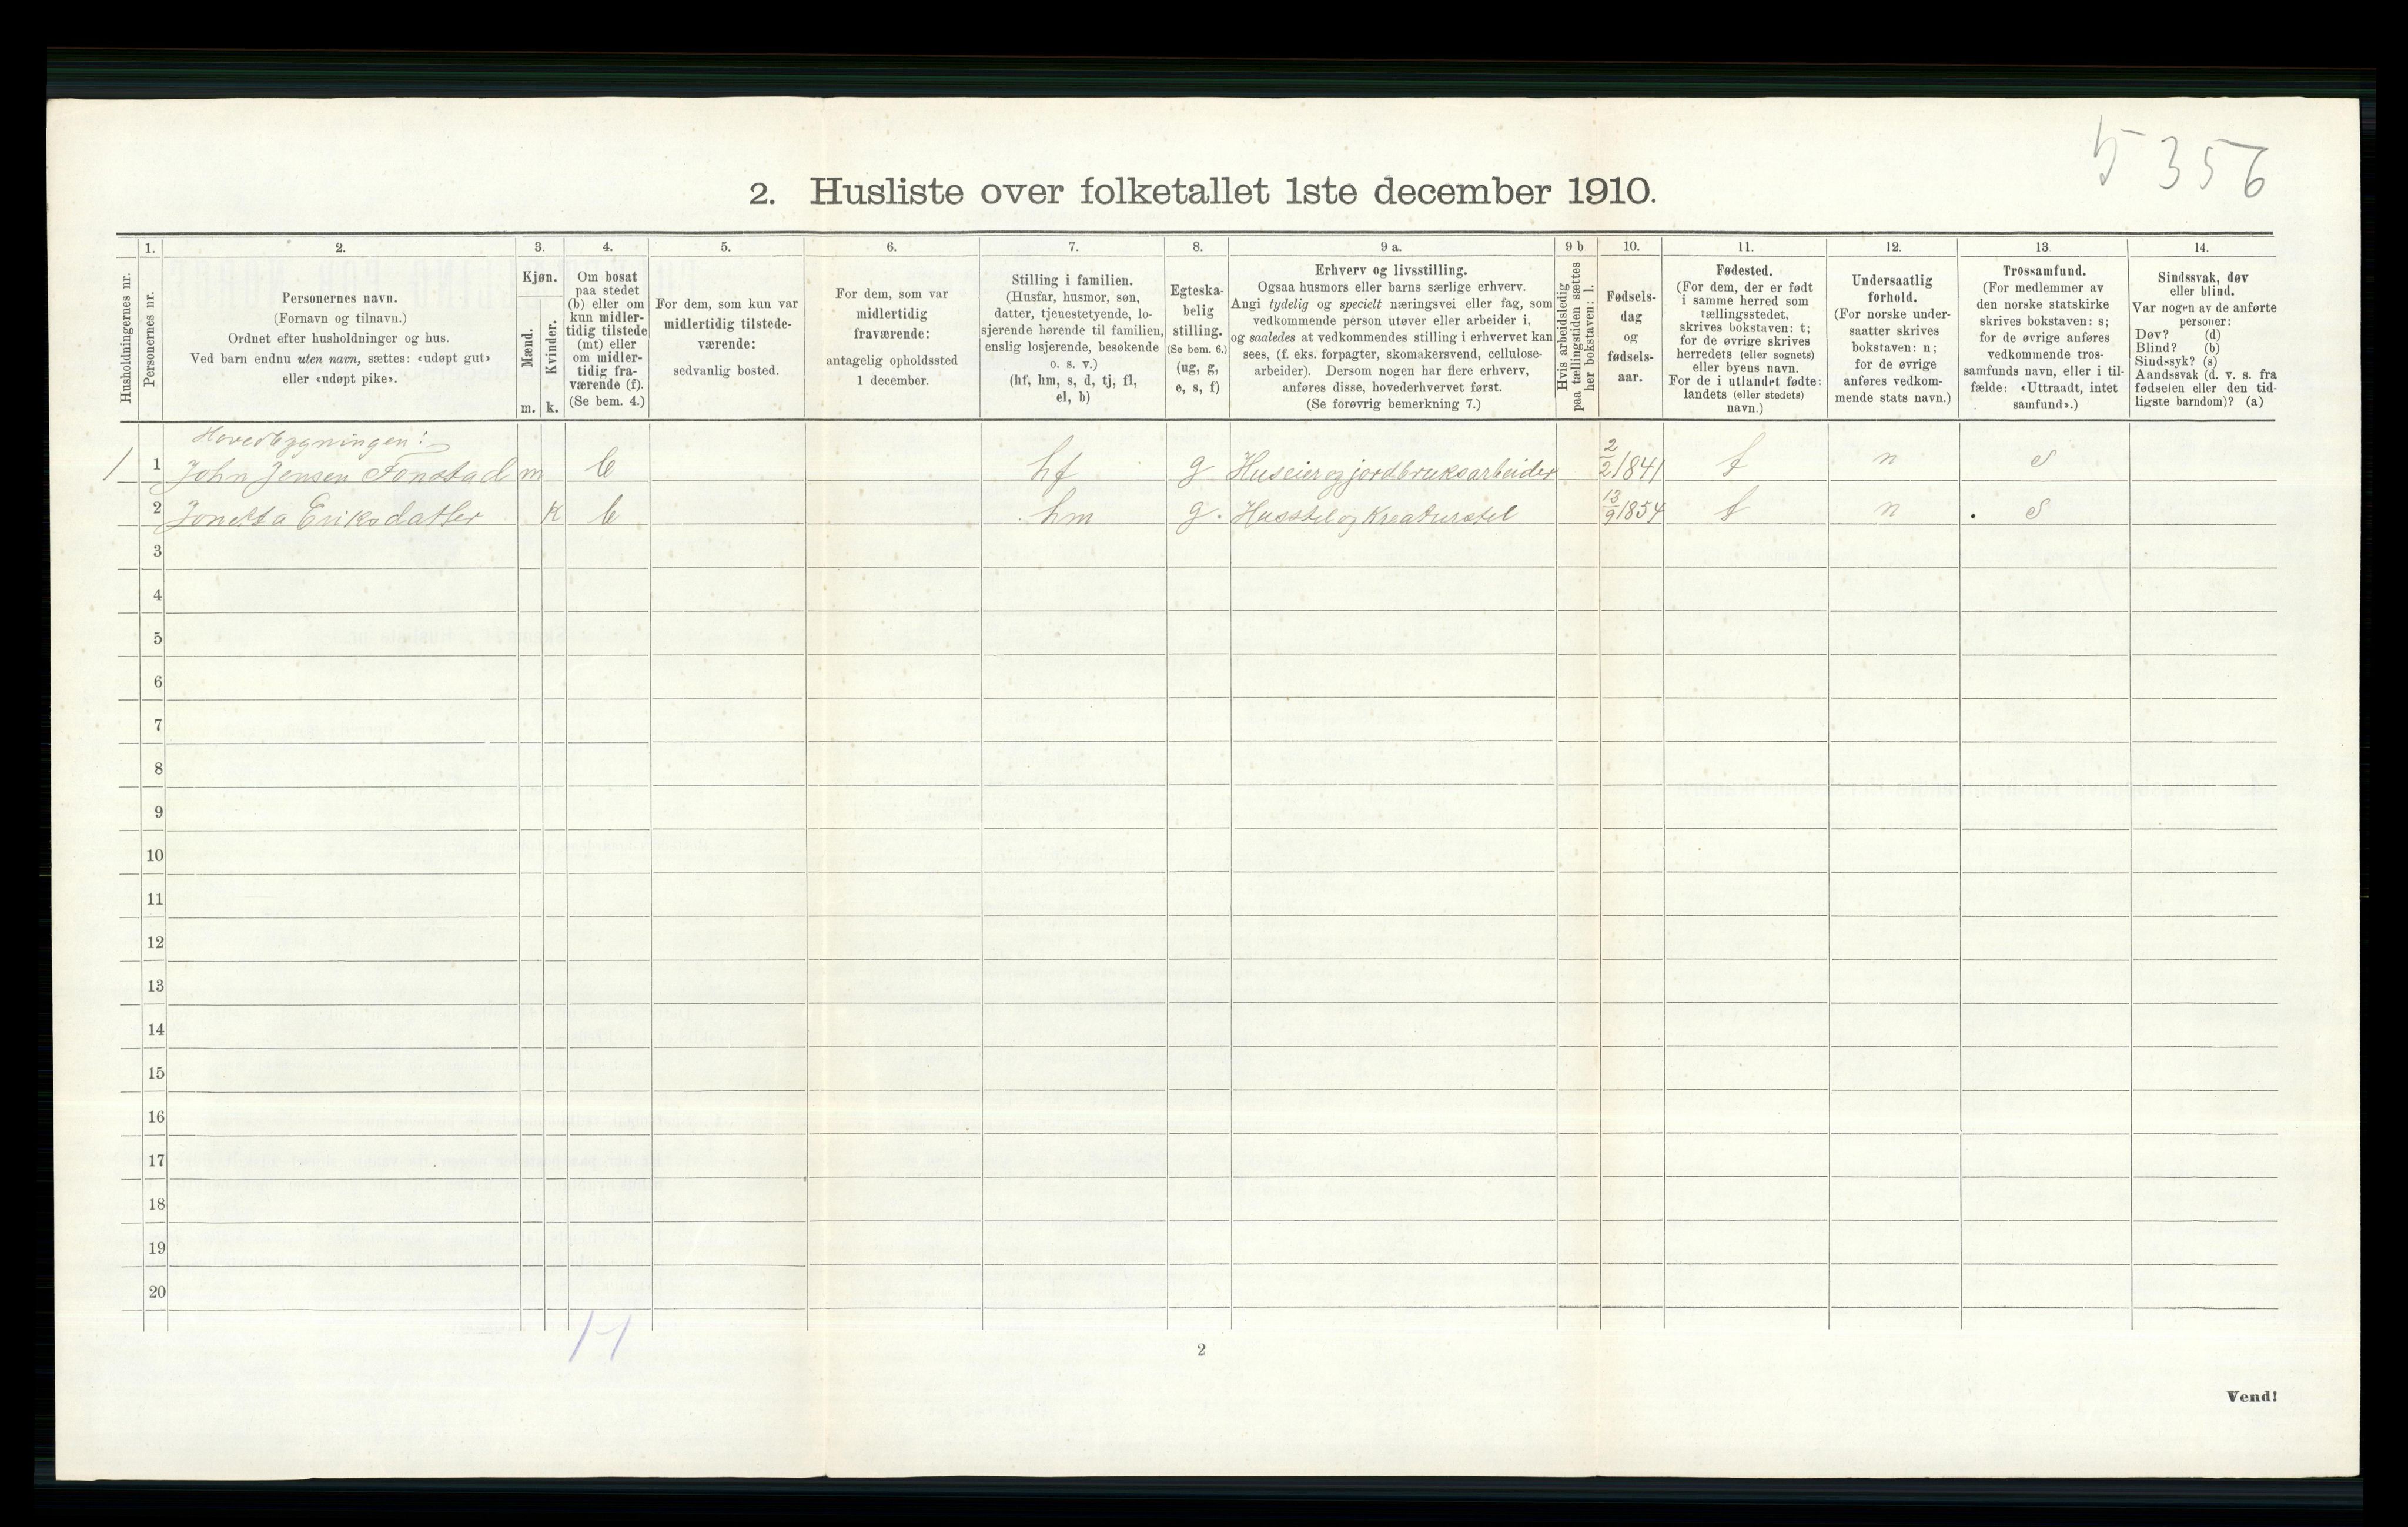 5356
2. Husliste over folketallet 1ste december 1910.
Husholdningernes nr.
1.
Personernes nr.
2.
Personernes navn.
(Fornavn og tilnavn.)
Ordnet efter husholdninger og hus.
Ved barn endnu uten navn, sættes: «udøpt gut»
eller «udøpt pike».
3.
Kjøn.
Mænd.
Kvinder.
m. k.
4.
Om bosat
paa stedet
(b) eller om
kun midler-
tidig tilstede
(mt) eller
om midler-
tidig fra-
værende (f).
(Se bem. 4.)
5.
For dem, som kun var
midlertidig tilstede-
værende:
sedvanlig bosted.
6.
For dem, som var
midlertidig
fraværende:
antagelig opholdssted
1 december.
7.
Stilling i familien.
(Husfar, husmor, søn,
datter, tjenestetyende, lo-
sjerende hørende til familien,
enslig losjerende, besøkende
o. s. v.)
(hf, hm, s, d, tj, fl,
el, b)
8.
Egteska-
belig
stilling.
(Se bem. 6.)
(ug, g,
e, s, f)
9 a.
Erhverv og livsstilling.
Ogsaa husmors eller barns særlige erhverv.
Angi tydelig og specielt næringsvei eller fag, som
vedkommende person utøver eller arbeider i,
og saaledes at vedkommendes stilling i erhvervet kan
sees, (f. eks. forpagter, skomakersvend, cellulose-
arbeider). Dersom nogen har flere erhverv,
anføres disse, hovederhvervet først.
(Se forøvrig bemerkning 7.)
9 b
Hvis arbeidsledig
paa tællingstiden sættes
her bokstaven: l.
10.
Fødsels-
dag
og
fødsels-
aar.
11.
Fødested.
(For dem, der er født
i samme herred som
tællingsstedet,
skrives bokstaven: t;
for de øvrige skrives
herredets (eller sognets)
eller byens navn.
For de i utlandet fødte:
landets (eller stedets)
navn.)
12.
Undersaatlig
forhold.
(For norske under-
saatter skrives
bokstaven: n;
for de øvrige
anføres vedkom-
mende stats navn.)
13
Trossamfund.
(For medlemmer av
den norske statskirke
skrives bokstaven: s;
for de øvrige anføres
vedkommende tros-
samfunds navn, eller i til-
fælde: «Uttraadt, intet
samfund».)
14.
Sindssvak, døv
eller blind.
Var nogen av de anførte
personer:
Døv? (d)
Blind? (b)
Sindssyk? (s)
Aandssvak (d. v. s. fra
fødselen eller den tid-
ligste barndom)? (a)
Hovedbygningen:
1 1 John Jensen Fonstad m b hf g Huseier og jordbruksarbeider 2/2 1841 t n s
2 Jonetta Eriksdatter k b hm g. Husstel og Kreaturstel 13/9 1854 t n s
3
4
5
6
7
8
9
10
11
12
13
14
15
16
17
18
19
20
1-1
2
Vend!